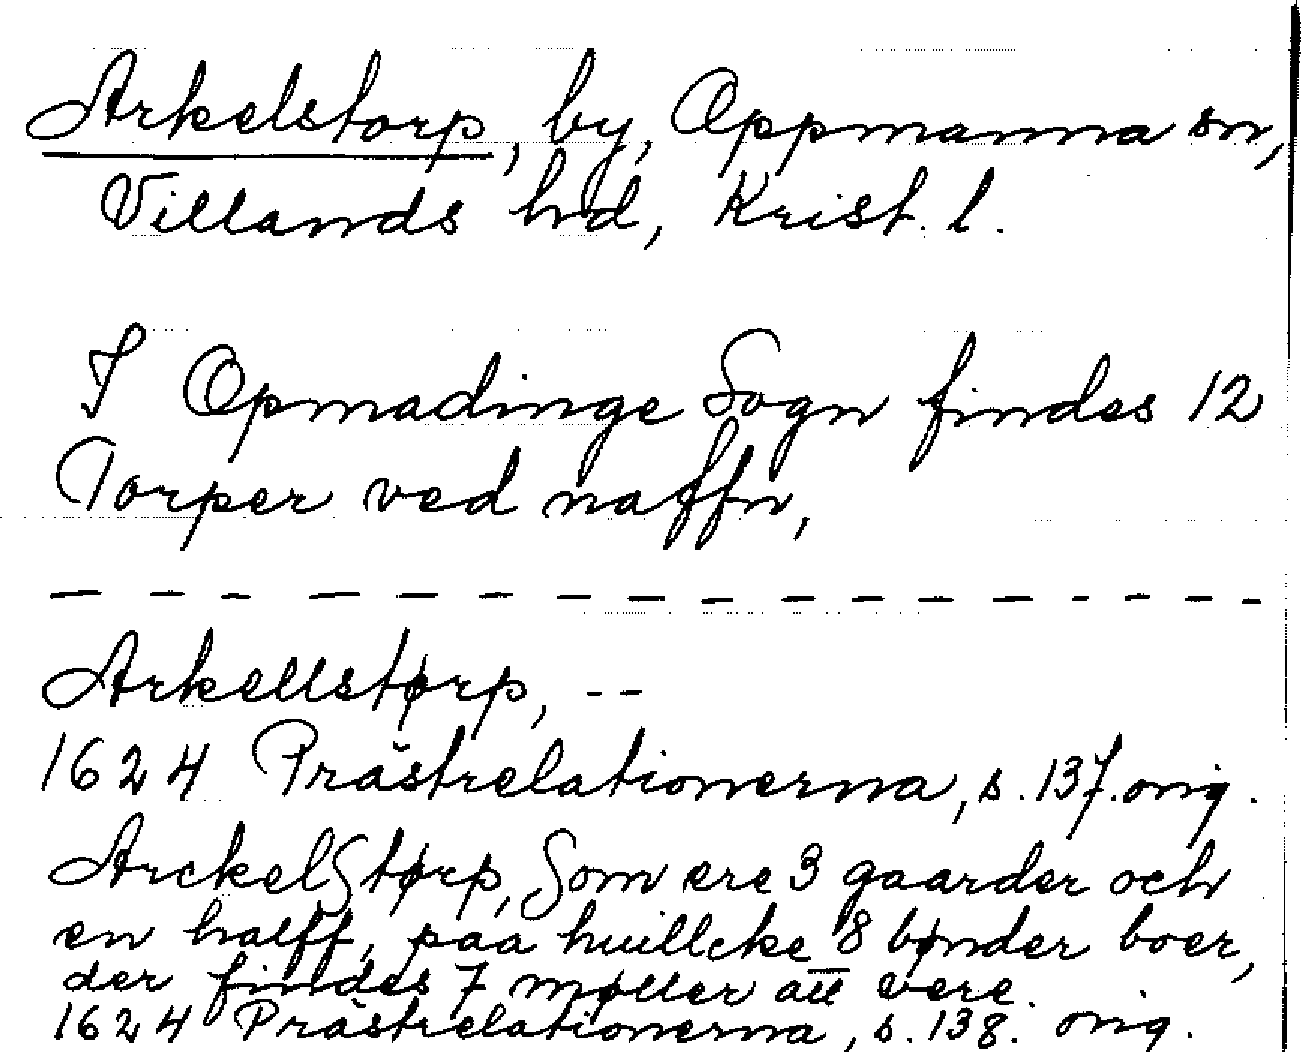 Arkelstorp, by, Oppmanna sn,
Villands hd, Krist. l.
I Opmadinge Sogn findes 12
Torper ved naffn,
— — — — — — — — — — — — — — — —
Arkellstørp, --
1624 Prästrelationerna, s. 137. orig.
ArckelStørp, Som ere 3 gaarder och
en halff, paa huillcke 8 bønder boer,
der findes 7 møller att vere.
1624 Prästrelationerna, s. 138. orig.